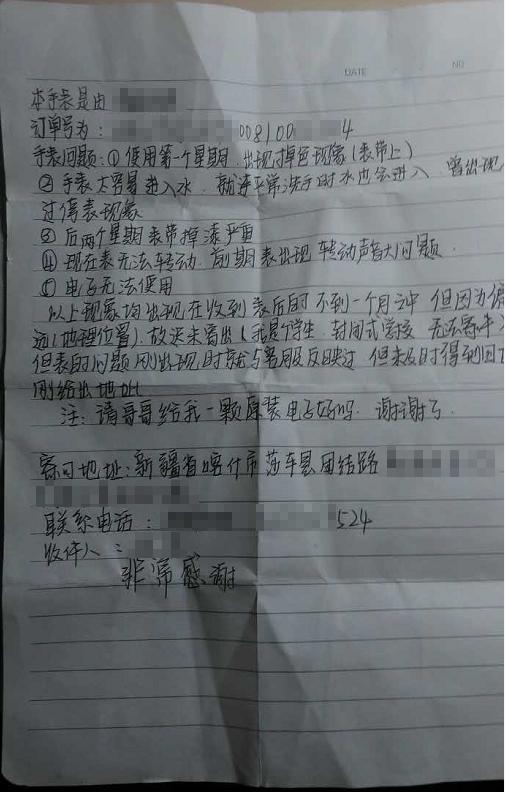 DATE NO
本手表是由
订单号为: 00810004
手表问题:①使用第一个星期,出现掉色现象(表带上)
②手表太容易进入水,就连平常洗手时水也会进入,曾出现
过停表现象
③后两个星期表带掉漆严重
④现在表无法转动,前期表出现转动声音大问题.
⑤电子无法使用
以上现象均出现在收到表后的不到一个月之中 但因为偏
远(地理位置).故迟未寄出(我是学生,封闭式学校 无法寄
但表的问题刚出现时就与客服反映过,但未及时得到回
刚给出地址
注:请哥哥给我一颗原装电子好吗.谢谢了.
寄回地址:新疆省喀什市莎车县团结路
联系电话: 524
收件人:
非常感谢